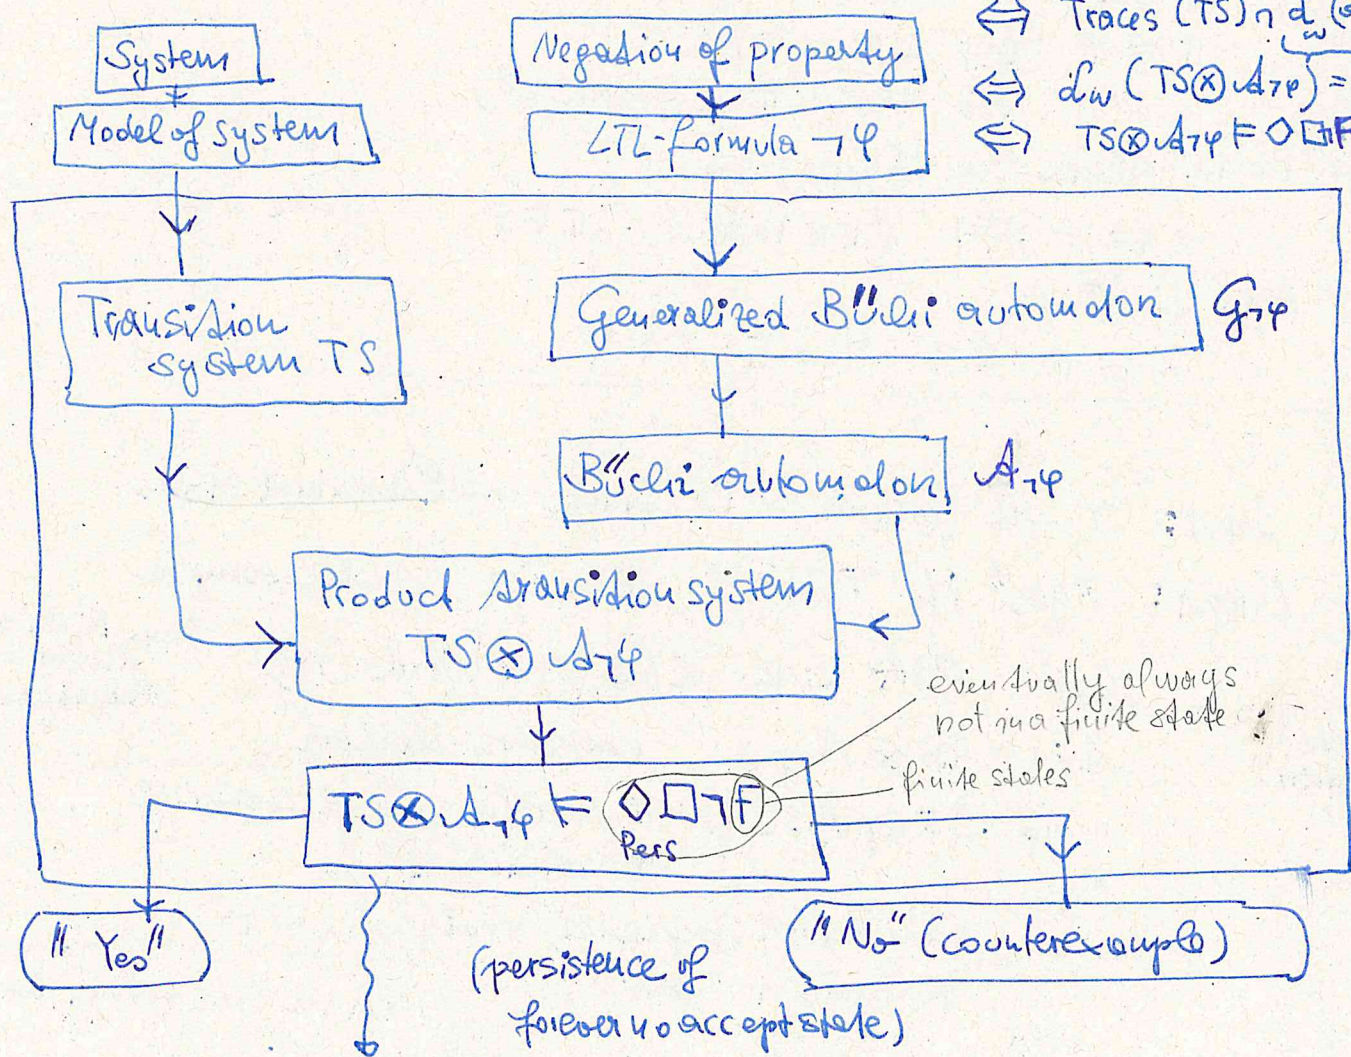 ⇔ Traces (TS) ∩ L_ω (
System
Negation of property
⇔ L_ω (TS⊗A¬φ) =
Model of system
LTL-formula ¬φ
⇔ TS⊗A¬φ ⊨ ◇□¬F
Transition
system TS
Generalized Büchi automaton G¬φ
Büchi automaton A¬φ
Product transition system
TS ⊗ A¬φ
eventually always
not in a finite state
finite states
TS⊗A¬φ ⊨ ◇□¬F
Pers
"Yes"
"No" (counterexample)
(persistence of
forever no accept state)